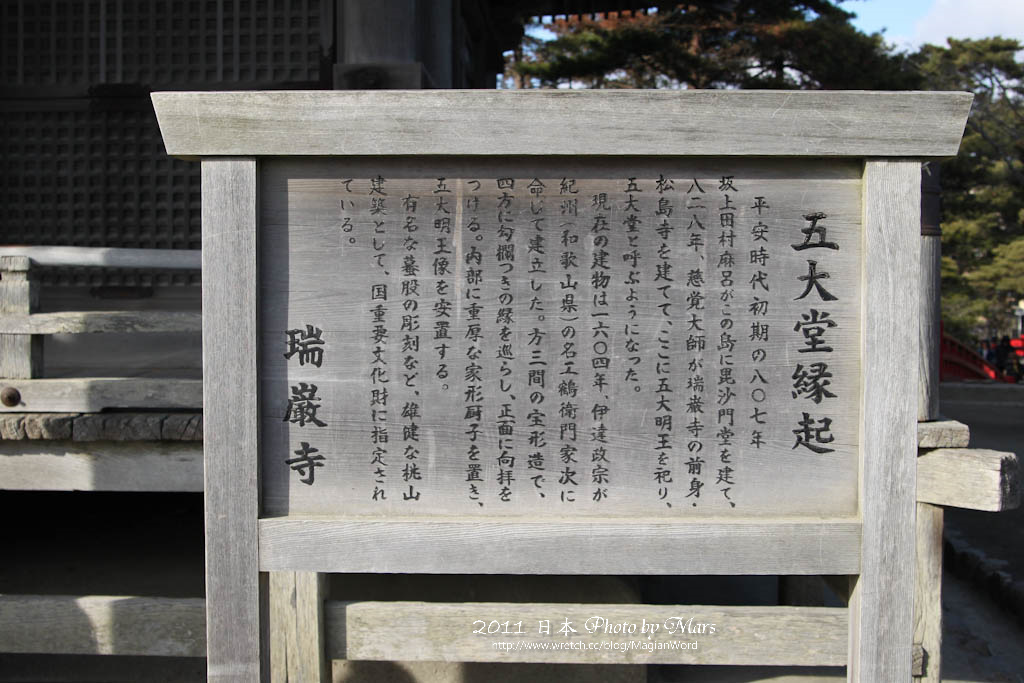 五大堂縁起
平安時代初期の八〇七年
坂上田村麻呂がこの島に毘沙門堂を建て、
八二八年、慈覚大師が瑞巌寺の前身・
松島寺を建てて、ここに五大明王を祀り、
五大堂と呼ぶようになった。
現在の建物は一六〇四年、伊達政宗が
紀州(和歌山県)の名工鶴衛門家次に
命じて建立した。方三間の宝形造で、
四方に勾欄つきの縁を巡らし、正面に向拝を
つける。内部に重厚な家形厨子を置き、
五大明王像を安置する。
有名な蟇股の彫刻など、雄健な桃山
建築として、国重要文化財に指定され
ている。
瑞巌寺
2011 日本 Photo by Mars
http://www.wretch.cc/blog/MagianWord